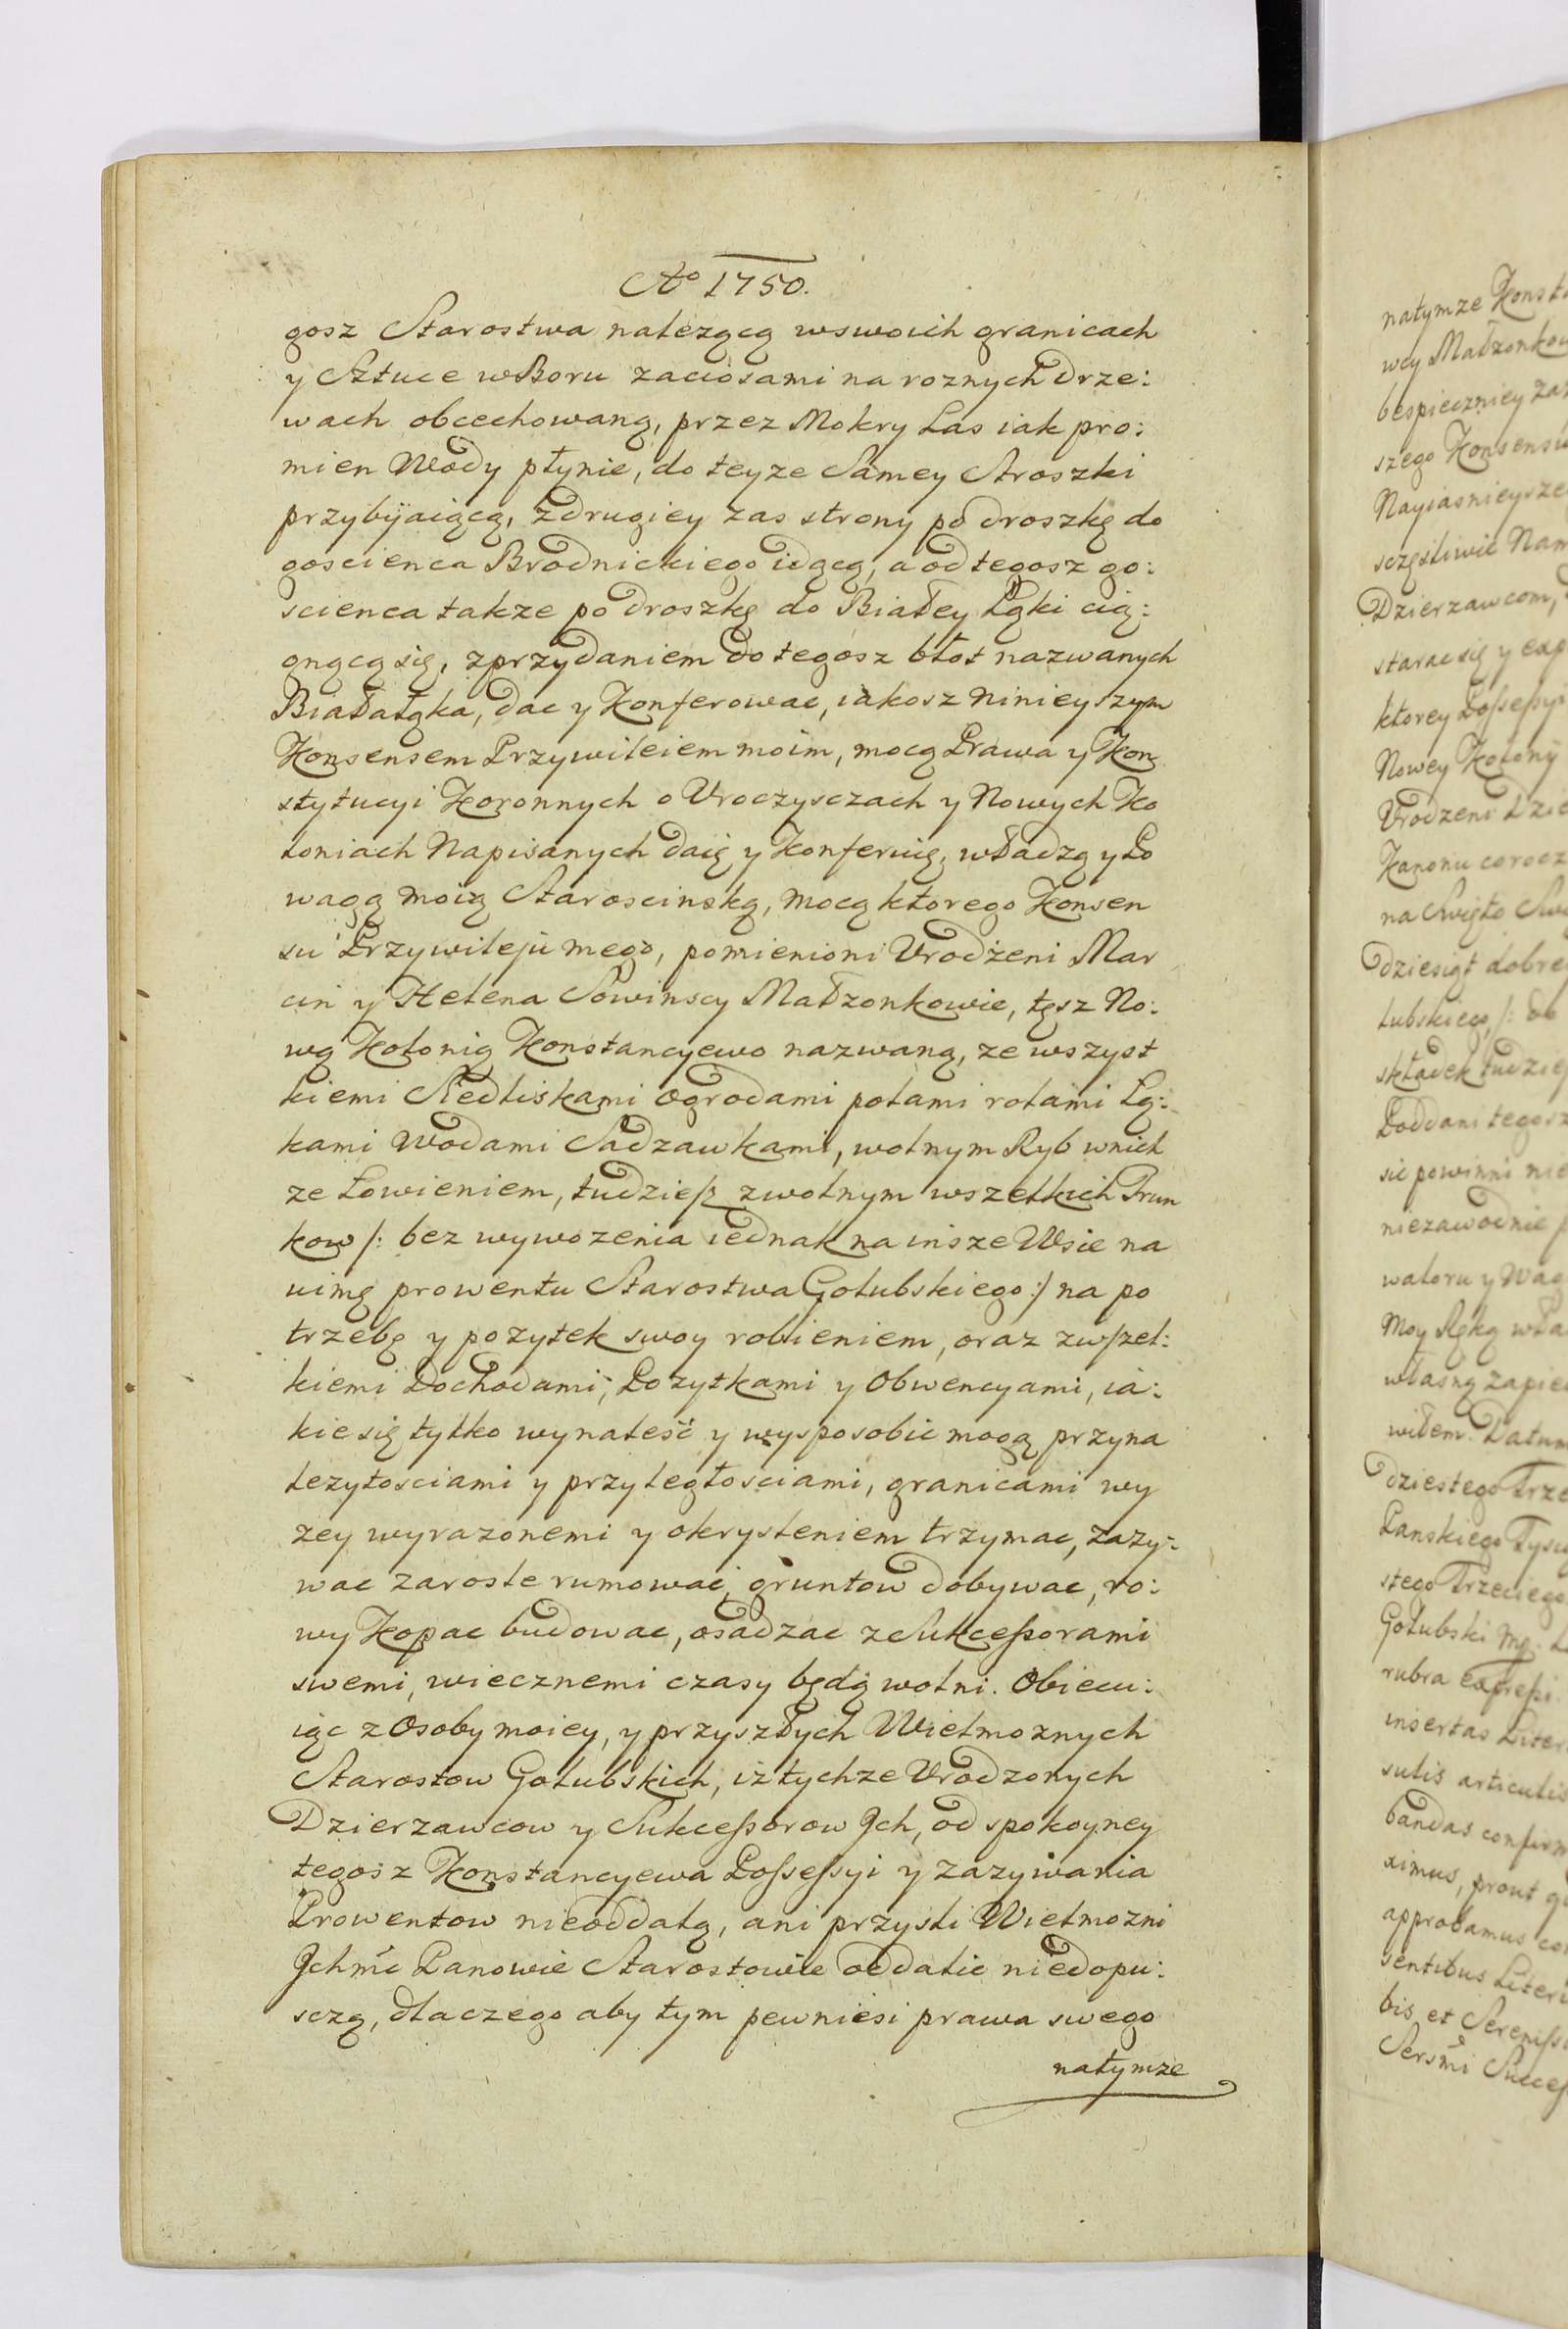 Aō 1750.
gosz Starostwa należącą wswoich granicach
y Sztuce wBoru zaciosami na roznych Drze:
wach obcechowaną, przez Mokry Las iak pro:
mien Wody płynie, do teyze Samey Stroszki
przybÿaiącą, zdrugiey zas strony po droszkę do
goscienca Brodnickiego idącą, a od tegosz go:
scienca takze po droszkę do Białey Łąki cią:
gnącą się, zprzydaniem do tegosz błot nazwanych
Białałąka, dac y Konferowac, iakosz ninieyszym
Konsensem Przywileiem moim, mocą Prawa y Kon
stytucyi Koronnych o Uroczysczach y Nowych Ko
loniach Napisanych daię y Konferuię, władzą y Po
wagą moią Staroscinską, mocą ktorego Konsen
su Przywileju mego, pomienioni Urodzeni Mar
cin y Helena Sowinscy Małzonkowie, tęsz No:
wą Kolonią Konstancyewo nazwaną, ze wszyst
kiemi Siedliskami ogrodami polami rolami Łą:
kami Wodami Sadzawkami, wolnym Ryb wnich
ze Łowieniem, tudziesz zwolnym wszelkich Trun
kow /: bez wywozenia iednak na insze Wsie na
uimę prowentu Starostwa Golubskiego :/ na po
trzebę y pozytek swoy robieniem, oraz zwszel:
kiemi Dochodami, Pozytkami y Obwencyami, ia:
kie się tylko wynaleść y wysposobic mogą przyna
lezytosciami y przyległosciami, granicami wy
zey wyrazonemi y okrysleniem trzymac, zazy:
wac zarosle rumowac, gruntow dobywac, ro:
wy Kopac budowac, osadzac z Sukcessorami
swemi, wiecznemi czasy będą wolni. Obiecu:
iąc z Osoby moiey, y przyszłych Wielmoznych
Starostow Golubskich, iż tychze Urodzonych
Dzierzawcow y Sukcessorow Jch, od spokoyney
tegosz Konstancyewa Possessyi y zazywania
Prowentow nieoddalą, ani przysli Wielmozni
Jchmć Panowie Starostowie oddalic niedopu:
sczą, dlaczego aby tym pewniesi prawa swego
natymze

natymze Konst
wcy Małzonkow
bespieczniey zaz
szego Konsensu
Nayiasnieysze
sczęsliwie Nam
Dzierzawcom,
starac się y exp
ktorey Possessyi
Nowey Kolony
Urodzeni Dzie
Kanonu corocz
na Swięto Swę
dziesiąt dobre
lubskiego, /: do
składek tudzie
Poddani tegosz
sie powinni nie
niezawodnie p
waloru y Wag
Moy Ręką wła
własną zapie
wiłem. Datum
dziestego Trze
Panskiego Tysi
stego Trzeciego
Golubski mp. L
rubra expressi
insertas Liter
sulis articulis
bandas confirm
ximus, prout qu
approbamus con
sentibus Literi
bis et Serenissi
Sersmi Succes